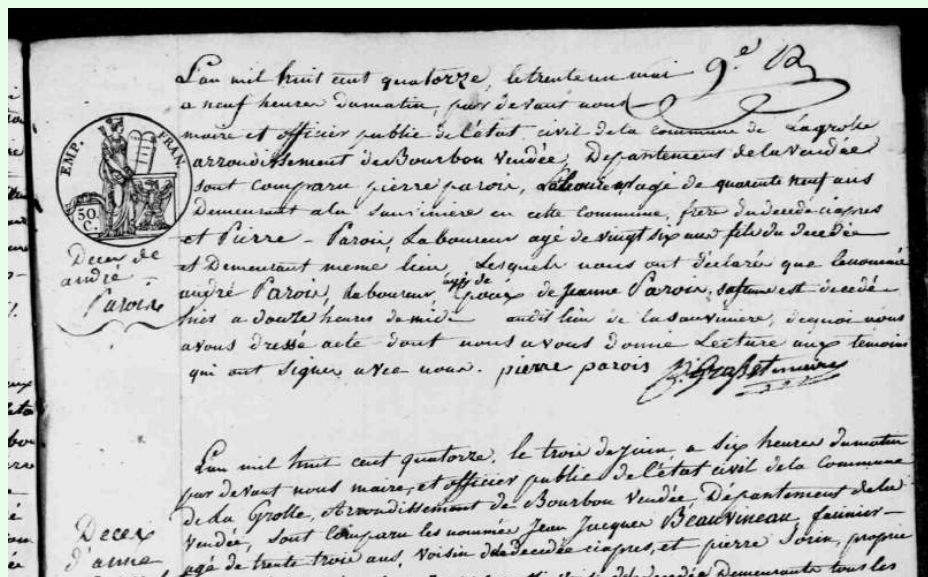 L'an mil huit cent quatorze, le trente un mai 9.e
a neuf heures du matin, par devant nous
maire et officier public de l'état civil de la commune de Lagrolle
arrondissement de Bourbon Vendée, Département de la Vendée
sont comparu pierre parois, agé de quarente neuf ans
Demeurant a la Sauvinière en cette commune, frere du decedé ciapres
et Pierre - Parois, Laboureur agé de vingt six ans fils du decedée
et Demeurant meme lieu, Lesquels nous ont déclaré que le nommé
andré Parois, Laboureur époux de Jeanne Parois, sa femme est decedé
hier a douze heures de midi audit lieu de la Sauvinière, de quoi nous
avons dressé acte dont nous avons donné Lecture aux temoins
qui ont signer avec nous. pierre parois maire
EMP. FRAN.
50
C.
Decex de
andré
Parois
L'an mil huit cent quatorze, le trois de juin, a six heures du matin
par devant nous maire, et officier public de l'état civil de la Commune
de La Grolle, Arrondissement de Bourbon Vendée, Département de la
Vendée, sont comparu les nommés Jean Jacques Beauvineau, farinier -
agé de trente trois ans, voisin de decedée ciapres, et pierre Sorin, proprie
decedée Demeurants tous les
Decex
d'anne